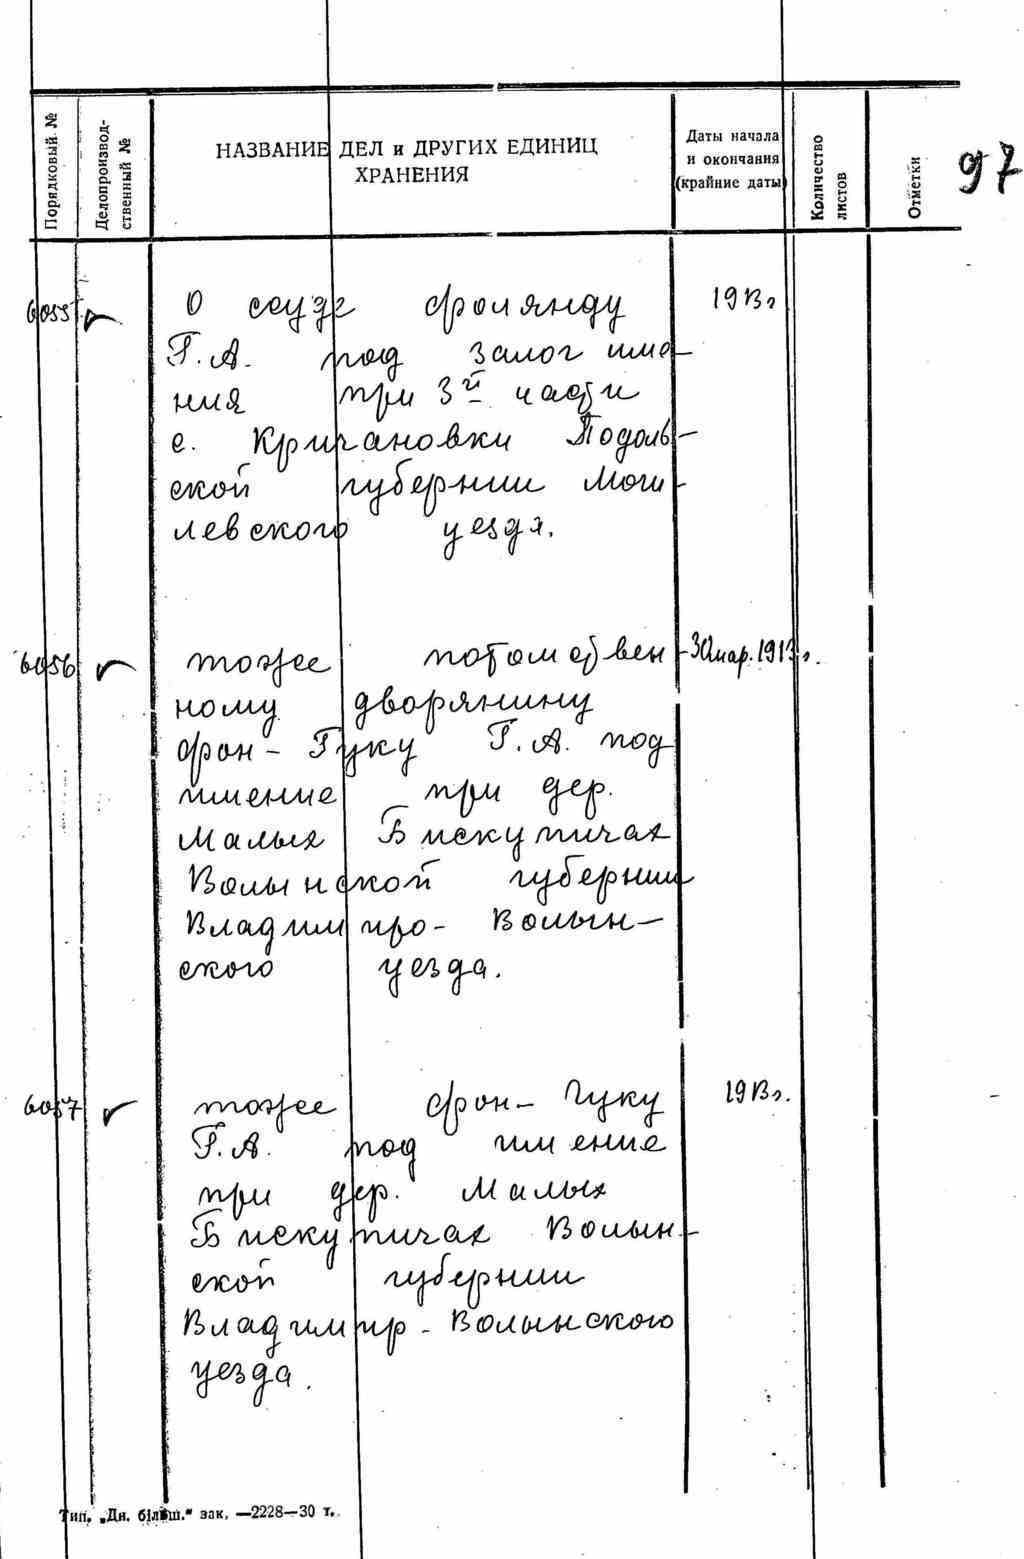 97
Порядковый №
Делопроизвод-
ственный №
НАЗВАНИЕ ДЕЛ и ДРУГИХ ЕДИНИЦ
ХРАНЕНИЯ
Даты начала
и окончания
(крайние даты)
Количество
листов
Отметки
6055 О ссуде Фролянду 1913г
Г.А. под залог име-
ния при 3й части
с. Кричановки Подоль-
ской губернии Моги-
левского уезда.
6056 тоже потомствен- 30 мар. 1913г.
ному дворянину
фон-Гуку Г.А. под
имение при дер.
Малых Бискупичах
Волынской губернии
Владимиро-Волын-
ского уезда.
6057 тоже фон-Гуку 1913г.
Г.А. под имение
при дер. Малых
Бискупичах Волын-
ской губернии
Владимир-Волынского
уезда.
Тип. „Дн. більш." зак. —2228—30 т.